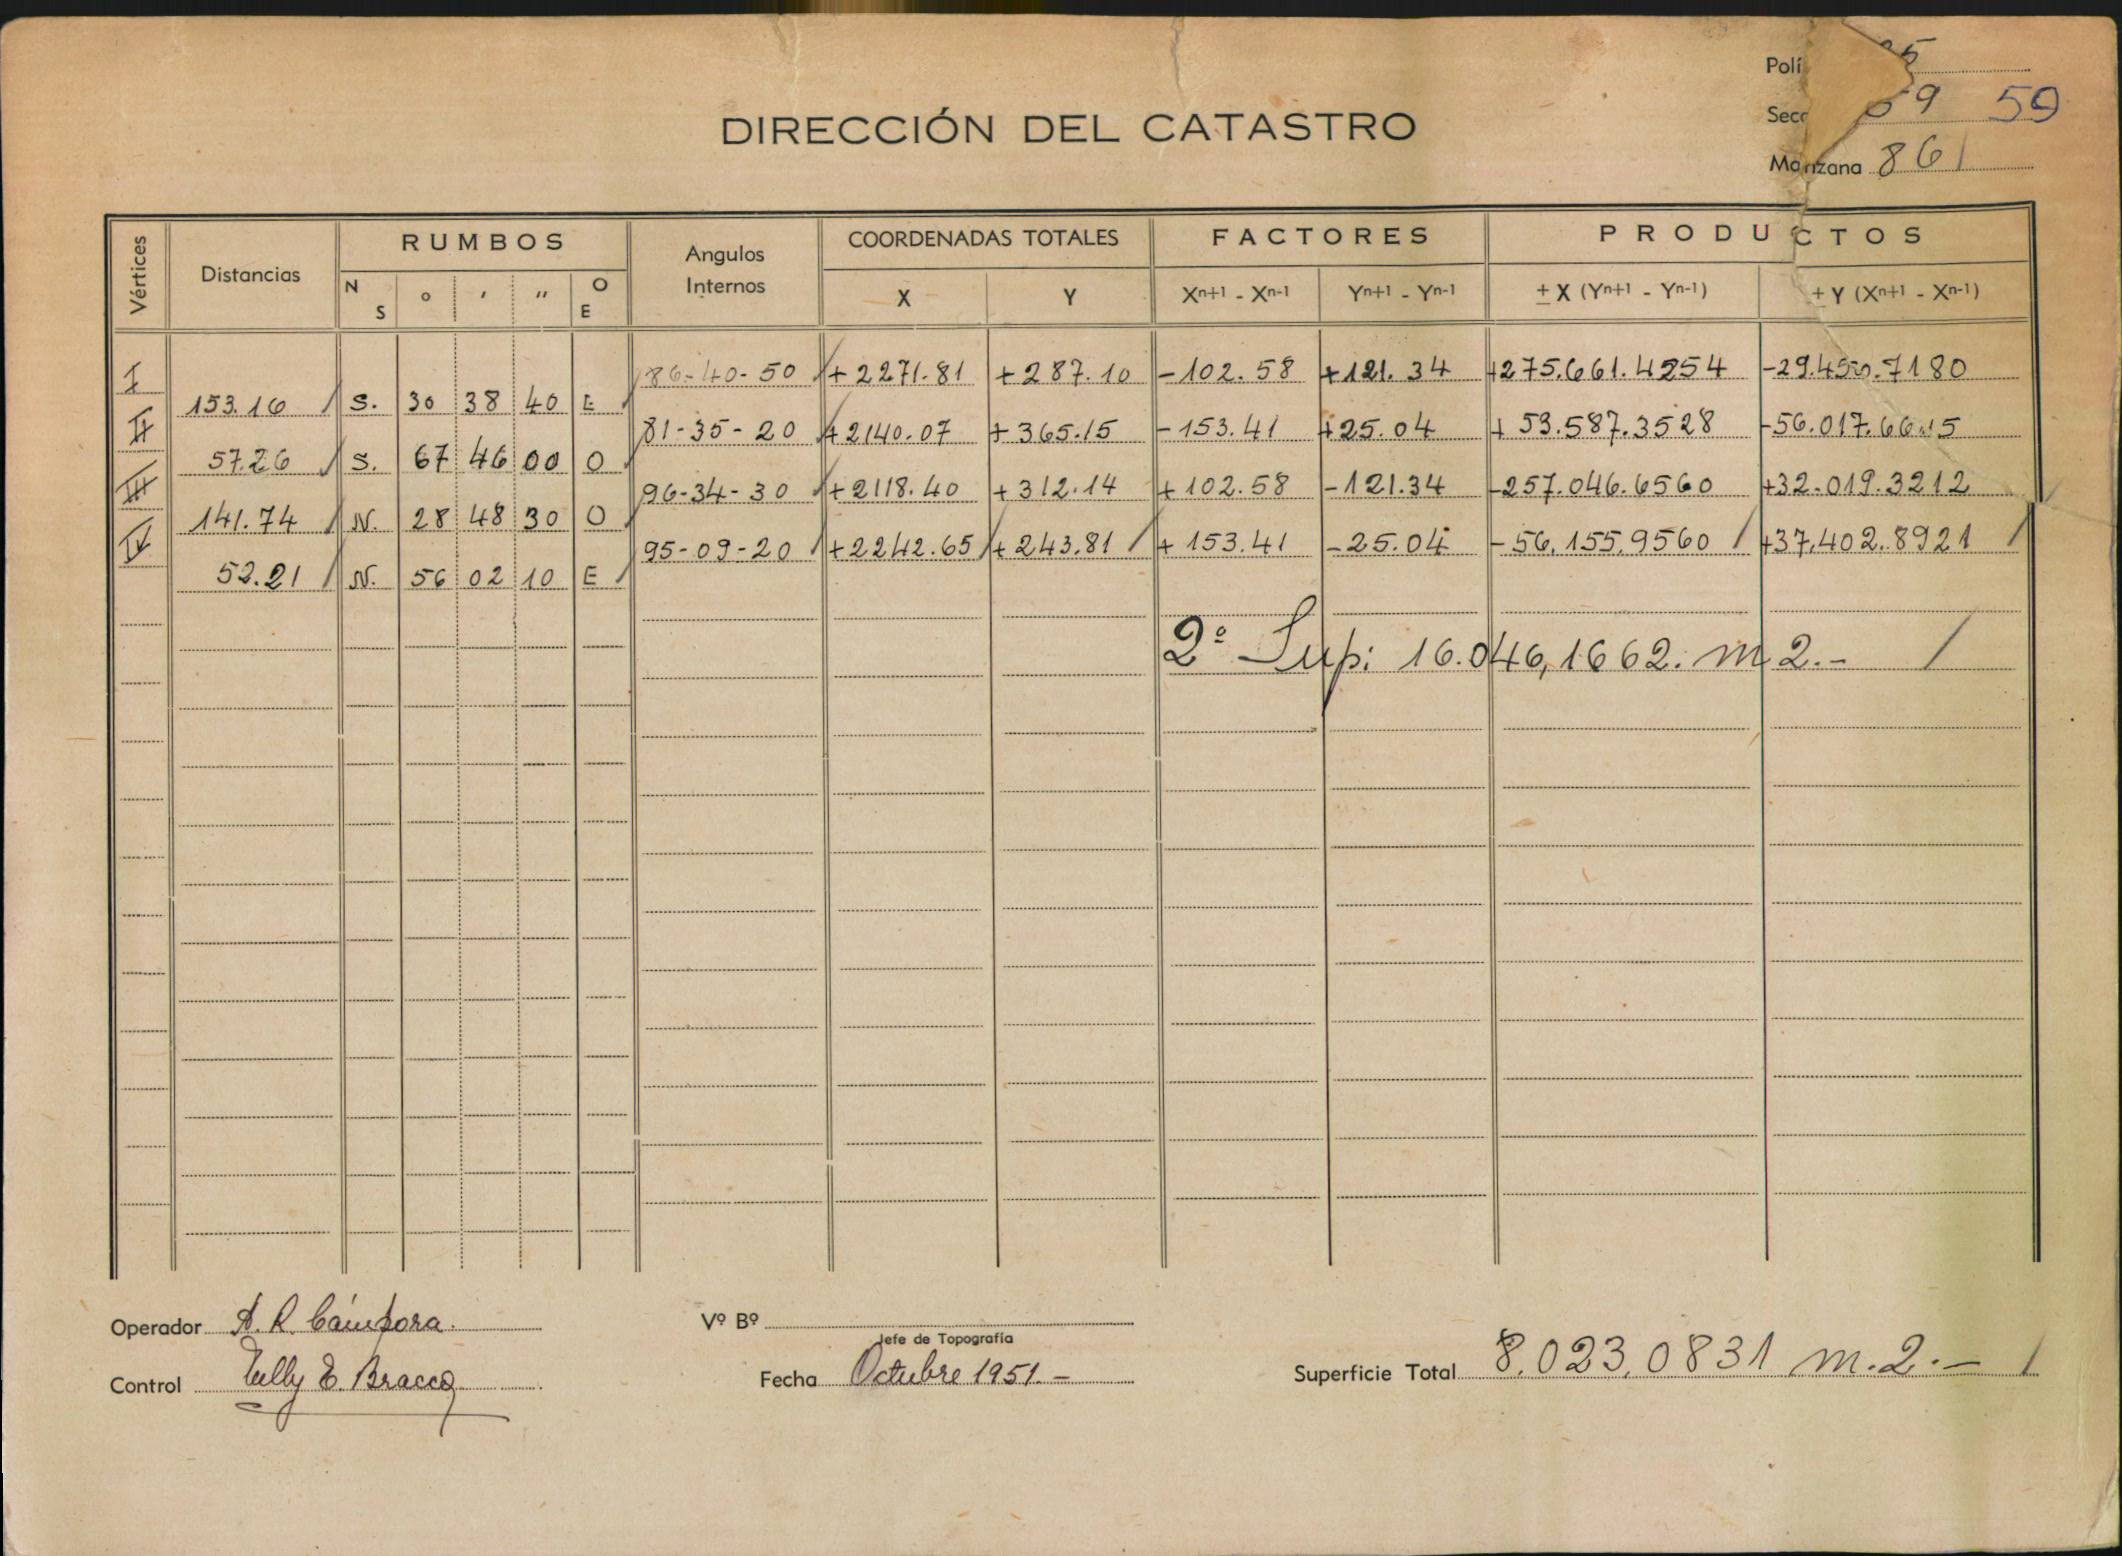 Polí 5
Secc 59 59
DIRECCIÓN DEL CATASTRO
Manzana 861
Vértices Distancias RUMBOS Angulos Internos COORDENADAS TOTALES FACTORES PRODUCTOS
N S ° ' " O E X Y Xn+1 - Xn-1 Yn+1 - Yn-1 ± X (Yn+1 - Yn-1) ± Y (Xn+1 - Xn-1)
I 86-40-50 +2271.81 +287.10 -102.58 +121.34 +275.661.4254 -29.450.7180
153.16 S. 30 38 40 E
II 81-35-20 +2140.07 +365.15 -153.41 +25.04 +53.587.3528 -56.017.6615
57.26 S. 67 46 00 O
III 96-34-30 +2118.40 +312.14 +102.58 -121.34 -257.046.6560 +32.019.3212
141.74 N. 28 48 30 O
IV 95-09-20 +2242.65 +243.81 +153.41 -25.04 -56.155.9560 +37.402.8921
52.21 N. 56 02 10 E
2º Sup: 16.046,1662. m2.-
Operador A. R. Cámpora.
Vº Bº
Jefe de Topografía
Control Tully E. Bracco
Fecha Octubre 1951.-
Superficie Total 8.023,0831 m.2.-